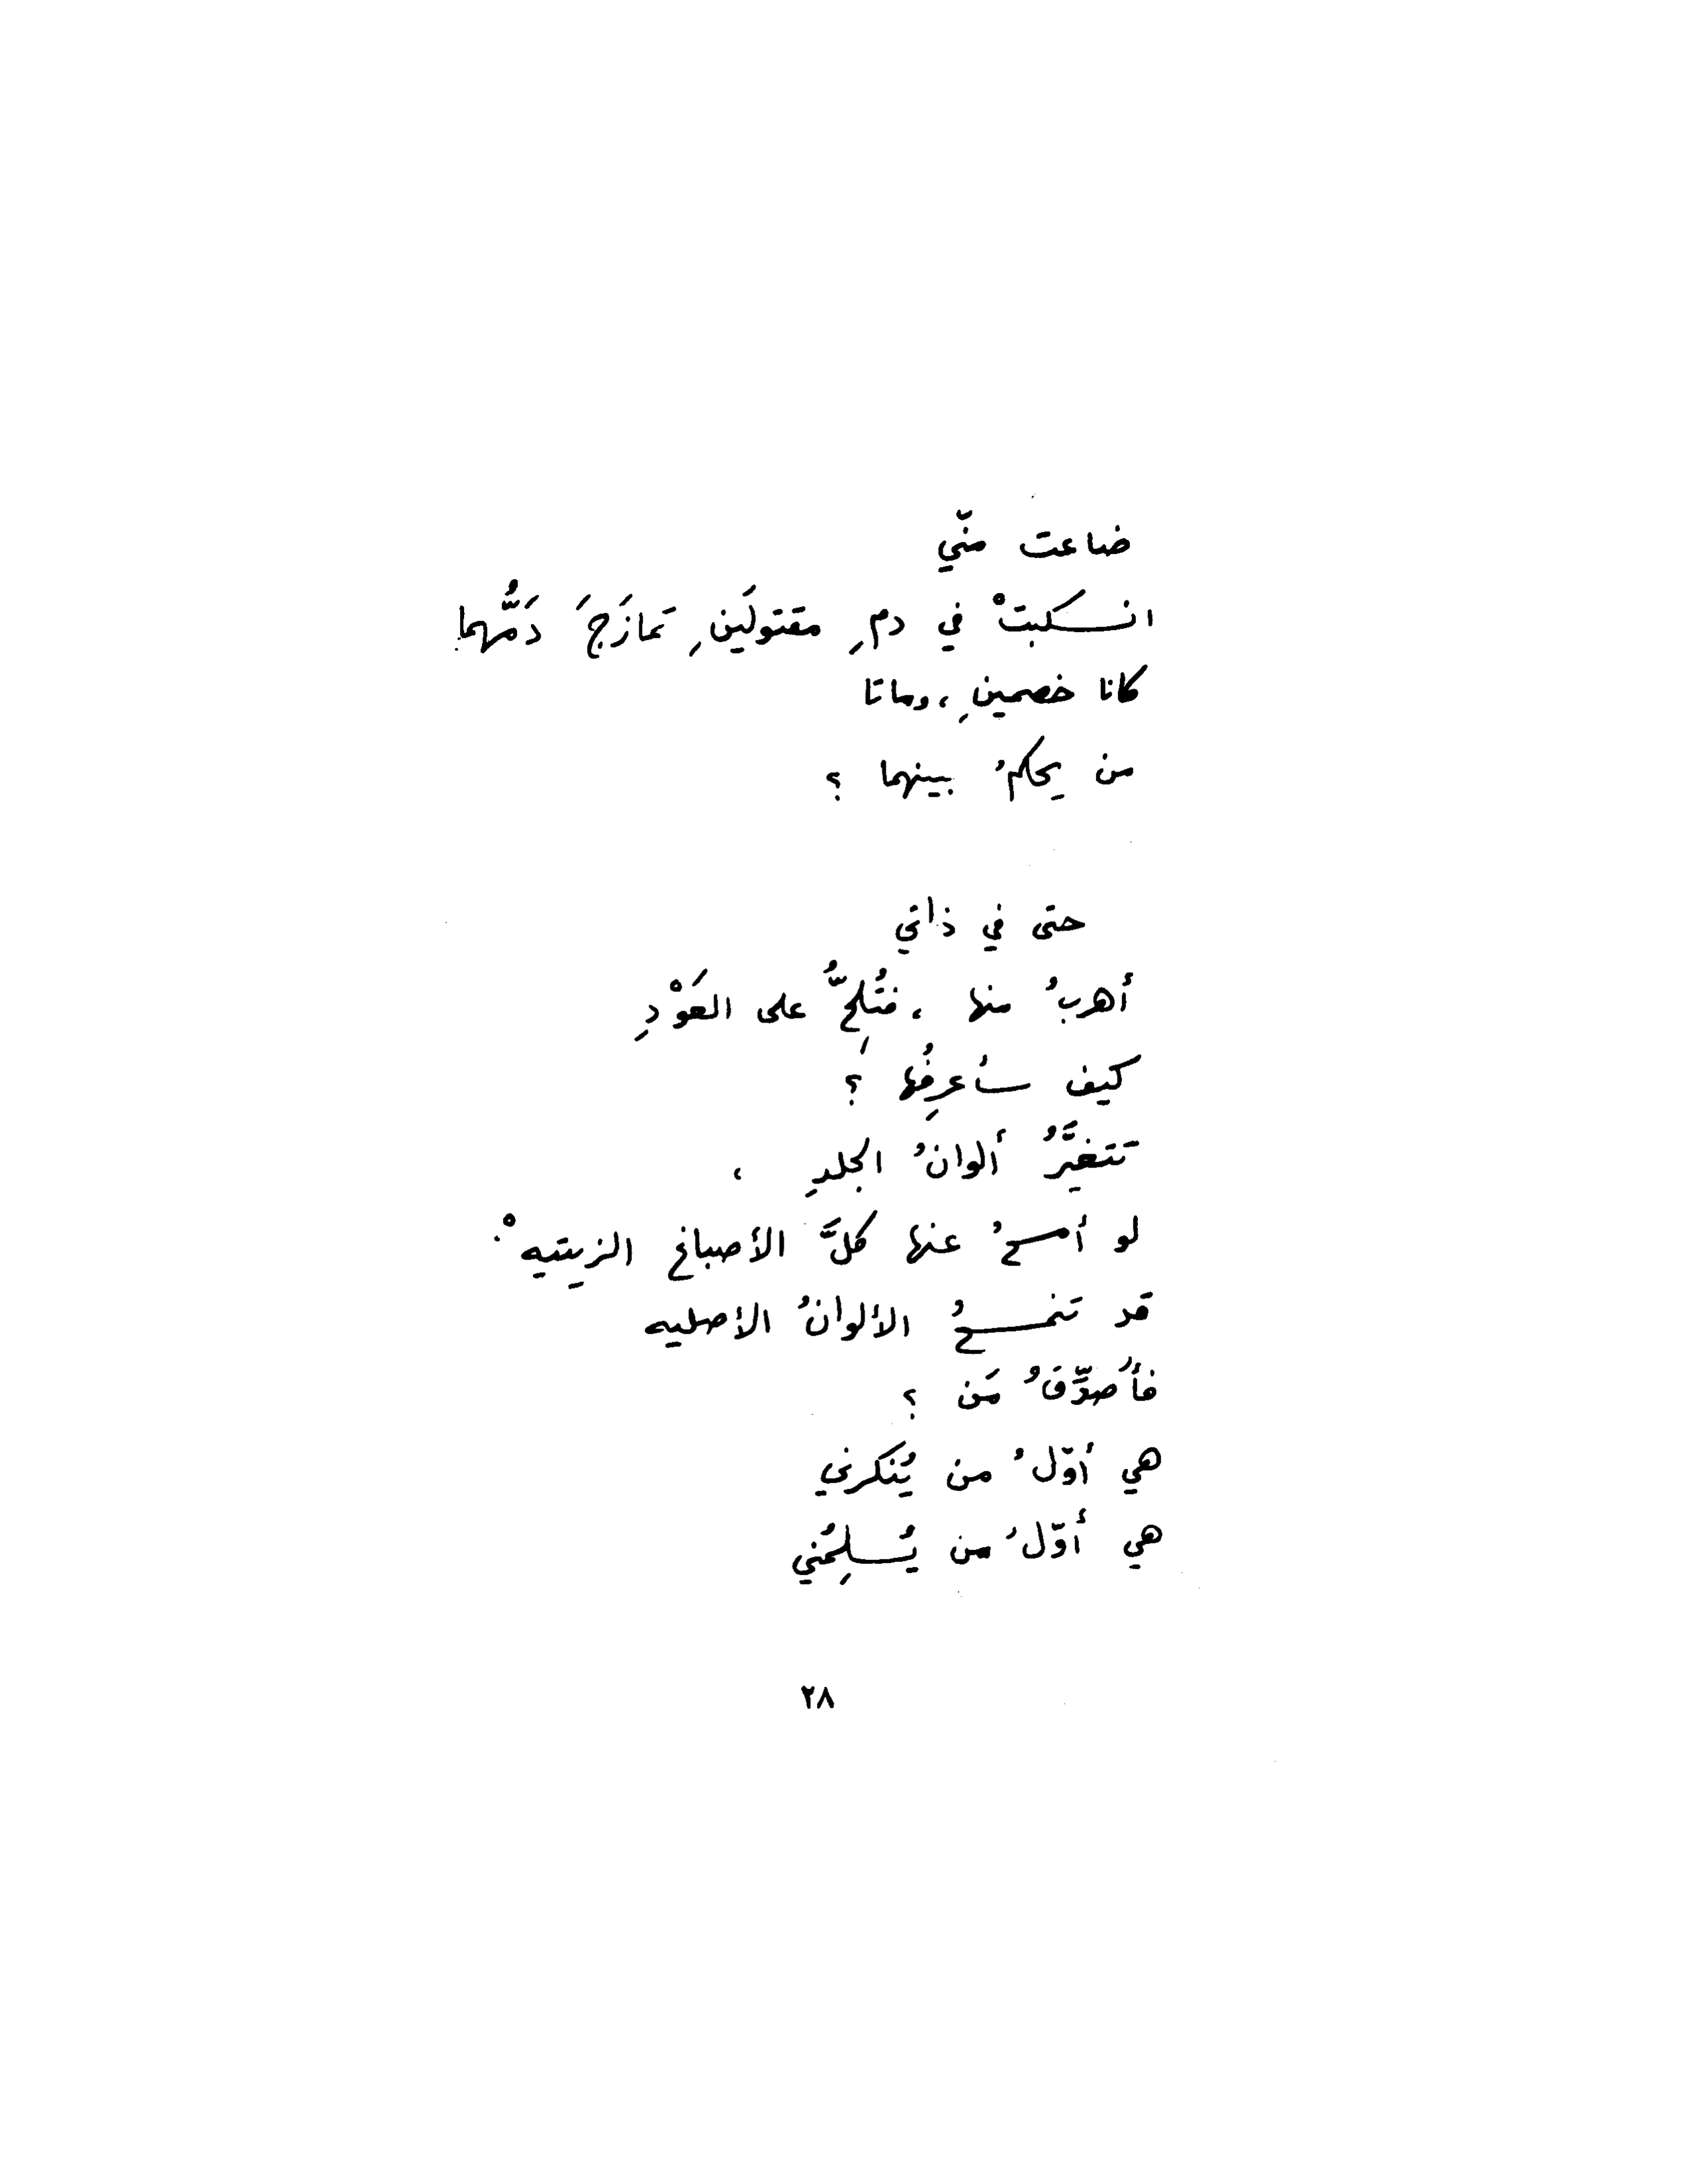 ضاعت منّي
انسكبتْ في دمِ مقتولَينِ تَمازَجَ دَمُّهما
كانا خصمينِ ، وماتا
من يحكمُ بينهما ؟
حتى في ذاتي
أهربُ منها ، فتُلِحُّ على العَوْدِ
كيف سأعرِفُها ؟
تَتغيَّرُ ألوانُ الجلدِ ،
لو أمسحُ عنها كلَّ الأصباغ الزيتيهْ .
قد تنمسحُ الألوانُ الأصليه
فأُصدِّقُ مَن ؟
هي أوّلُ من يُنكرني
هي أوّلُ من يُسلِمُني
٢٨